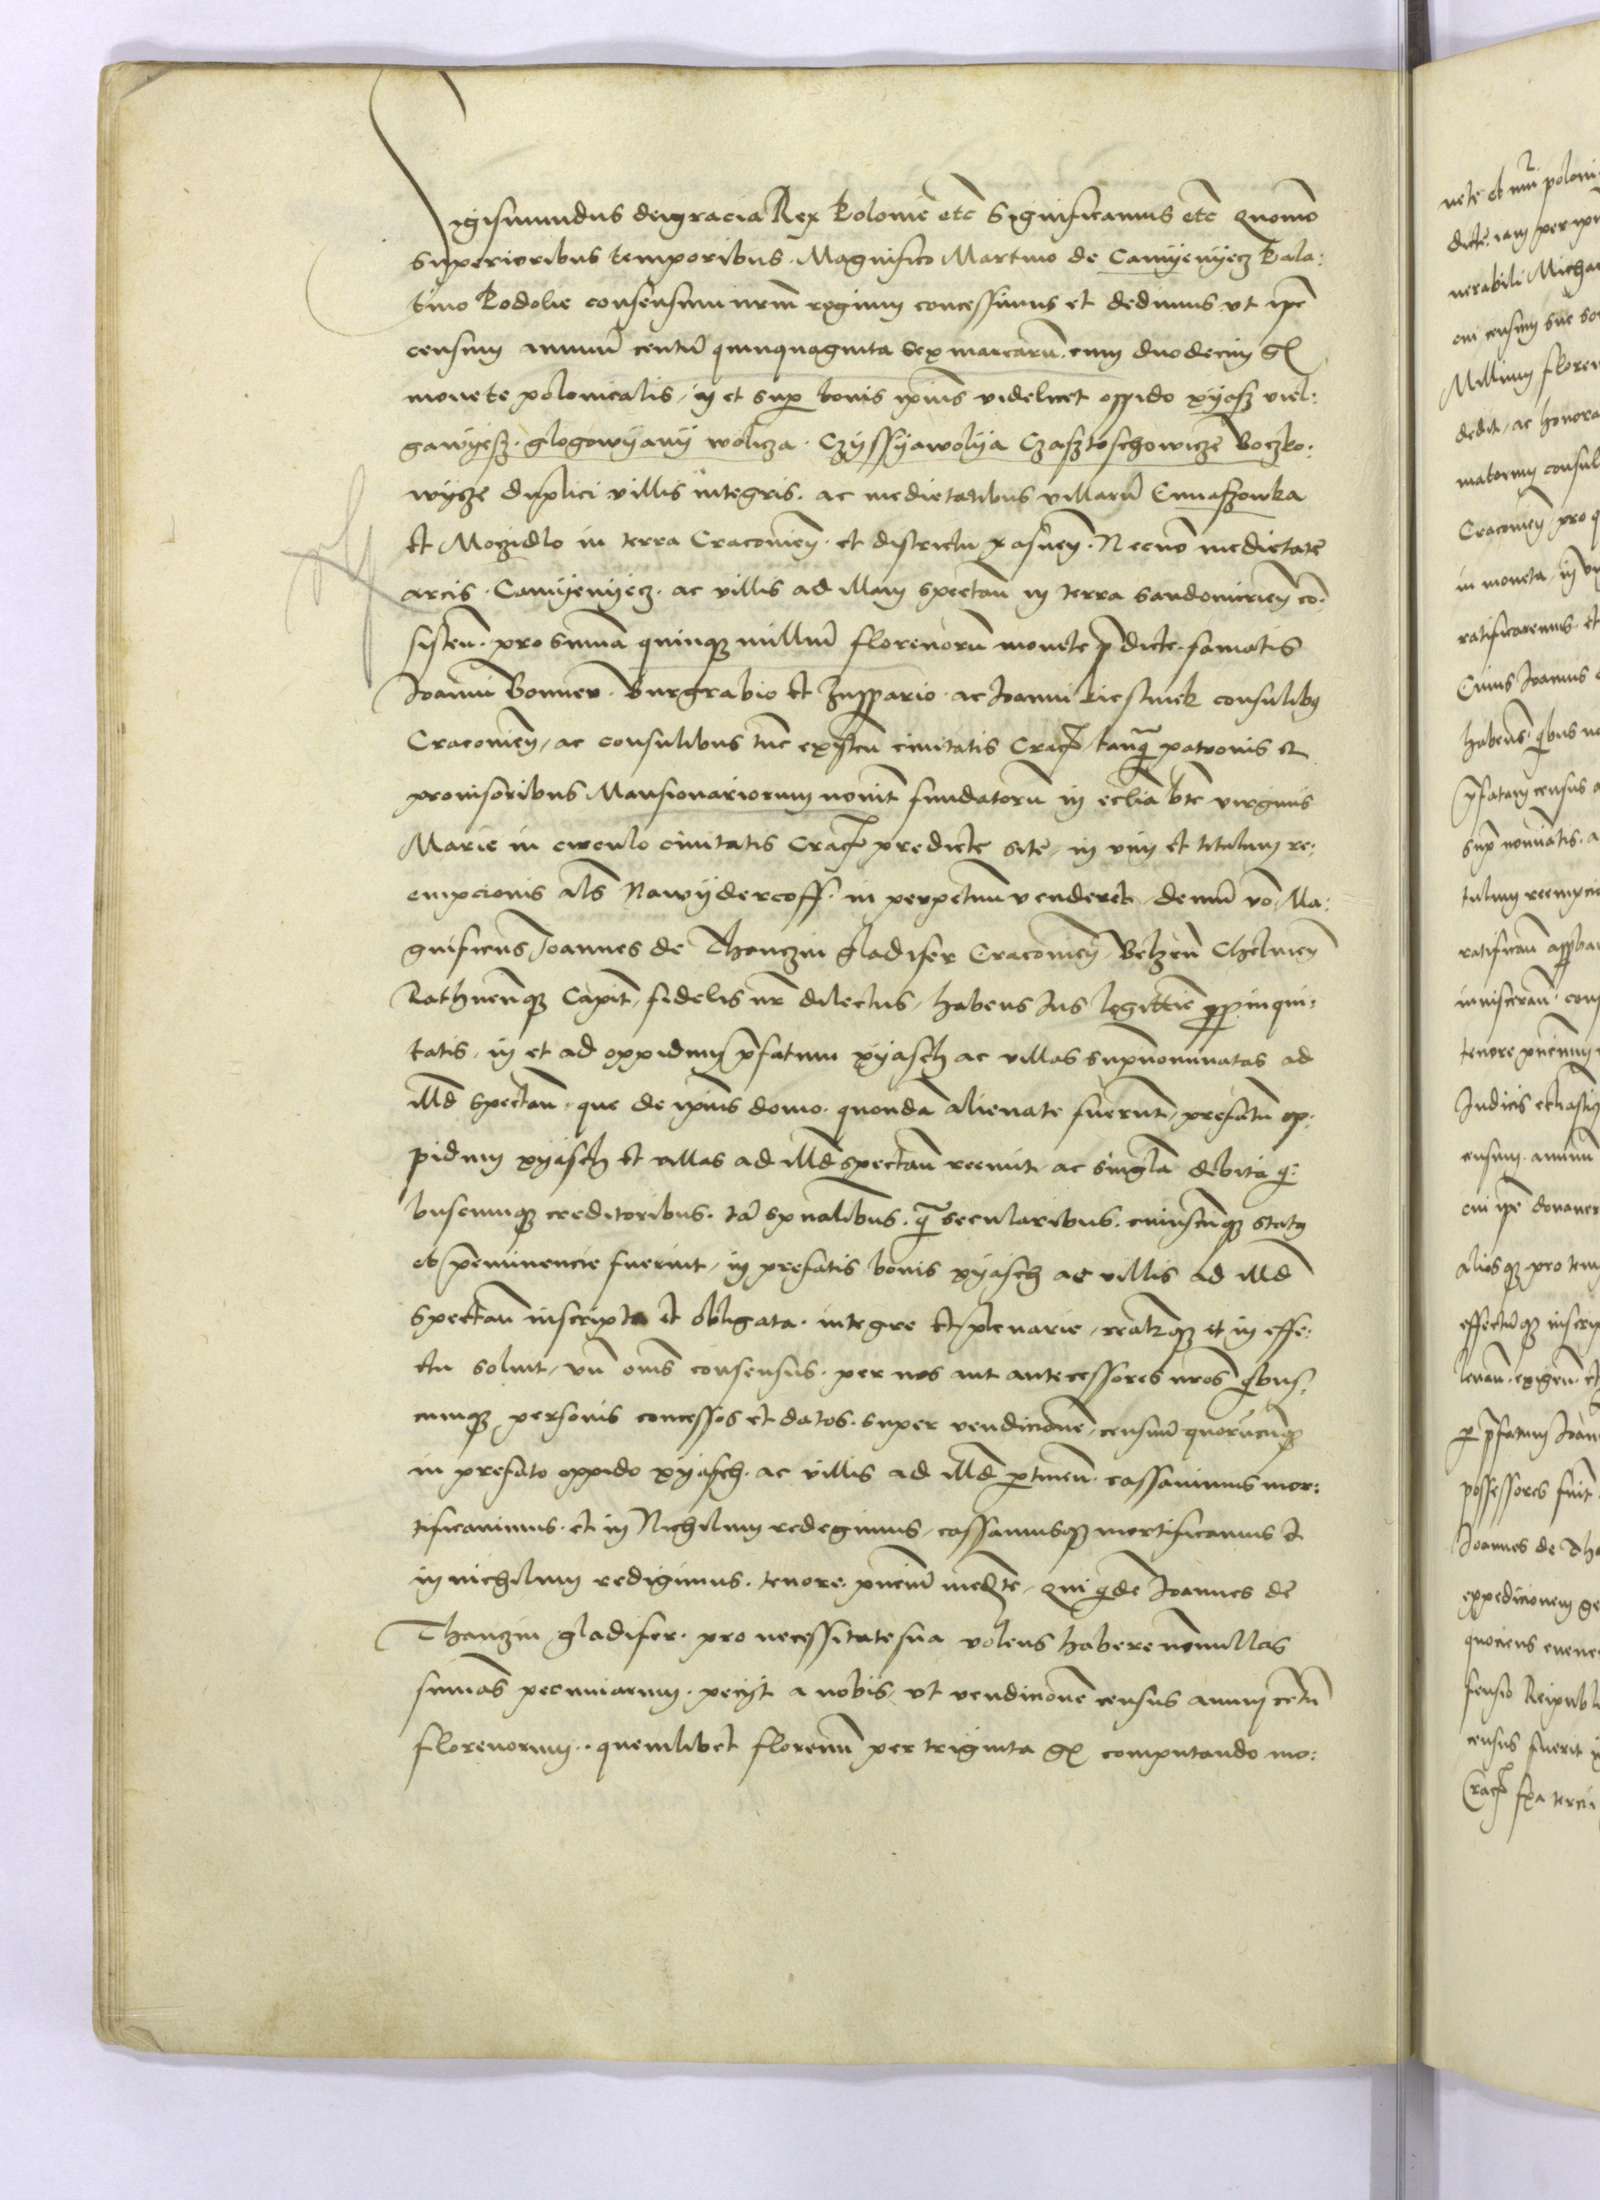 Sigismundus dei gracia Rex Polonie etc Significamus etc Quomo
superioribus temporibus. Magnifico Martino de Camyenyecz Pala:
tino Podolie consensum nrm regium concessimus et dedimus ut ipe
censum annuu centu quinquaginta sex marcaru. cum duodecim gr
monete polonicalis, in et sup bonis ipius videlicet oppido xyasz viel:
gawyesz. glogowyany wolicza. Czyssyawolya Czasztoschowicze Boczko:
wycze duplici villis integris. ac medietatibus villaru Cunaszowka
et Mozidlo in terra Cracovien. et districtu xasnen. Necno medietate
arcis. Camyenyecz. ac villis ad illam spectan in terra Sandomirien co:
sisten. pro summa quinque milliu florenoru monete pdicte. famatis
Joanni Bonner. Burgrabio et Zuppario. ac Joanni kiestnek consulibus
Cracovien, ac consulibus tuc existen civitatis Crac, tanq patronis et
provisoribus Mansionariorum noviter fundatoru in ecclia bte virginis
Marie in circulo civitatis Crac predicte site, in vim et titulum re:
empcionis als Nawydercoff. in perpetuu venderet, demu vo Ma:
gnificus Joannes de Thanczin gladifer Cracovien, Belzen Chelmen
Rathnenque Capit, fidelis nr dilectus, habens Jus legittie ppinqui:
tatis, in et ad oppidum pfatum xyasch ac villas supnominatas ad
illd spectan. que de ipius domo. quonda alienate fuerunt, prefatu op:
pidum xyasch et villas ad illd spectan reemit, ac singla debita qi:
buscumque creditoribus. ta spualibus. q secularibus. cuiuscuque status
et peminencie fuerint, in prefatis bonis xyasch ac villis ad illd
spectan inscripta et obligata. integre et plenarie, realrque et in effe:
ctu solvit, un oms consensus. per nos aut antecessores nros qibus:
cumque personis concessos et datos. super vendicione, censuu quorucuque
in prefato oppido xyasch. ac villis ad illd ptinen. cassavimus mor:
tificavimus. et in Nichilum redegimus, cassamusque mortificamus et
in nichilum redigimus. tenore. pnciu medte, Qui qde Joannes de
Thanczin gladifer. pro necessitate sua volens habere nonnullas
summas pecuniarum. peciit a nobis, ut vendicione census annui centu
florenorum. quemlibet florenu per triginta gr computando mo: